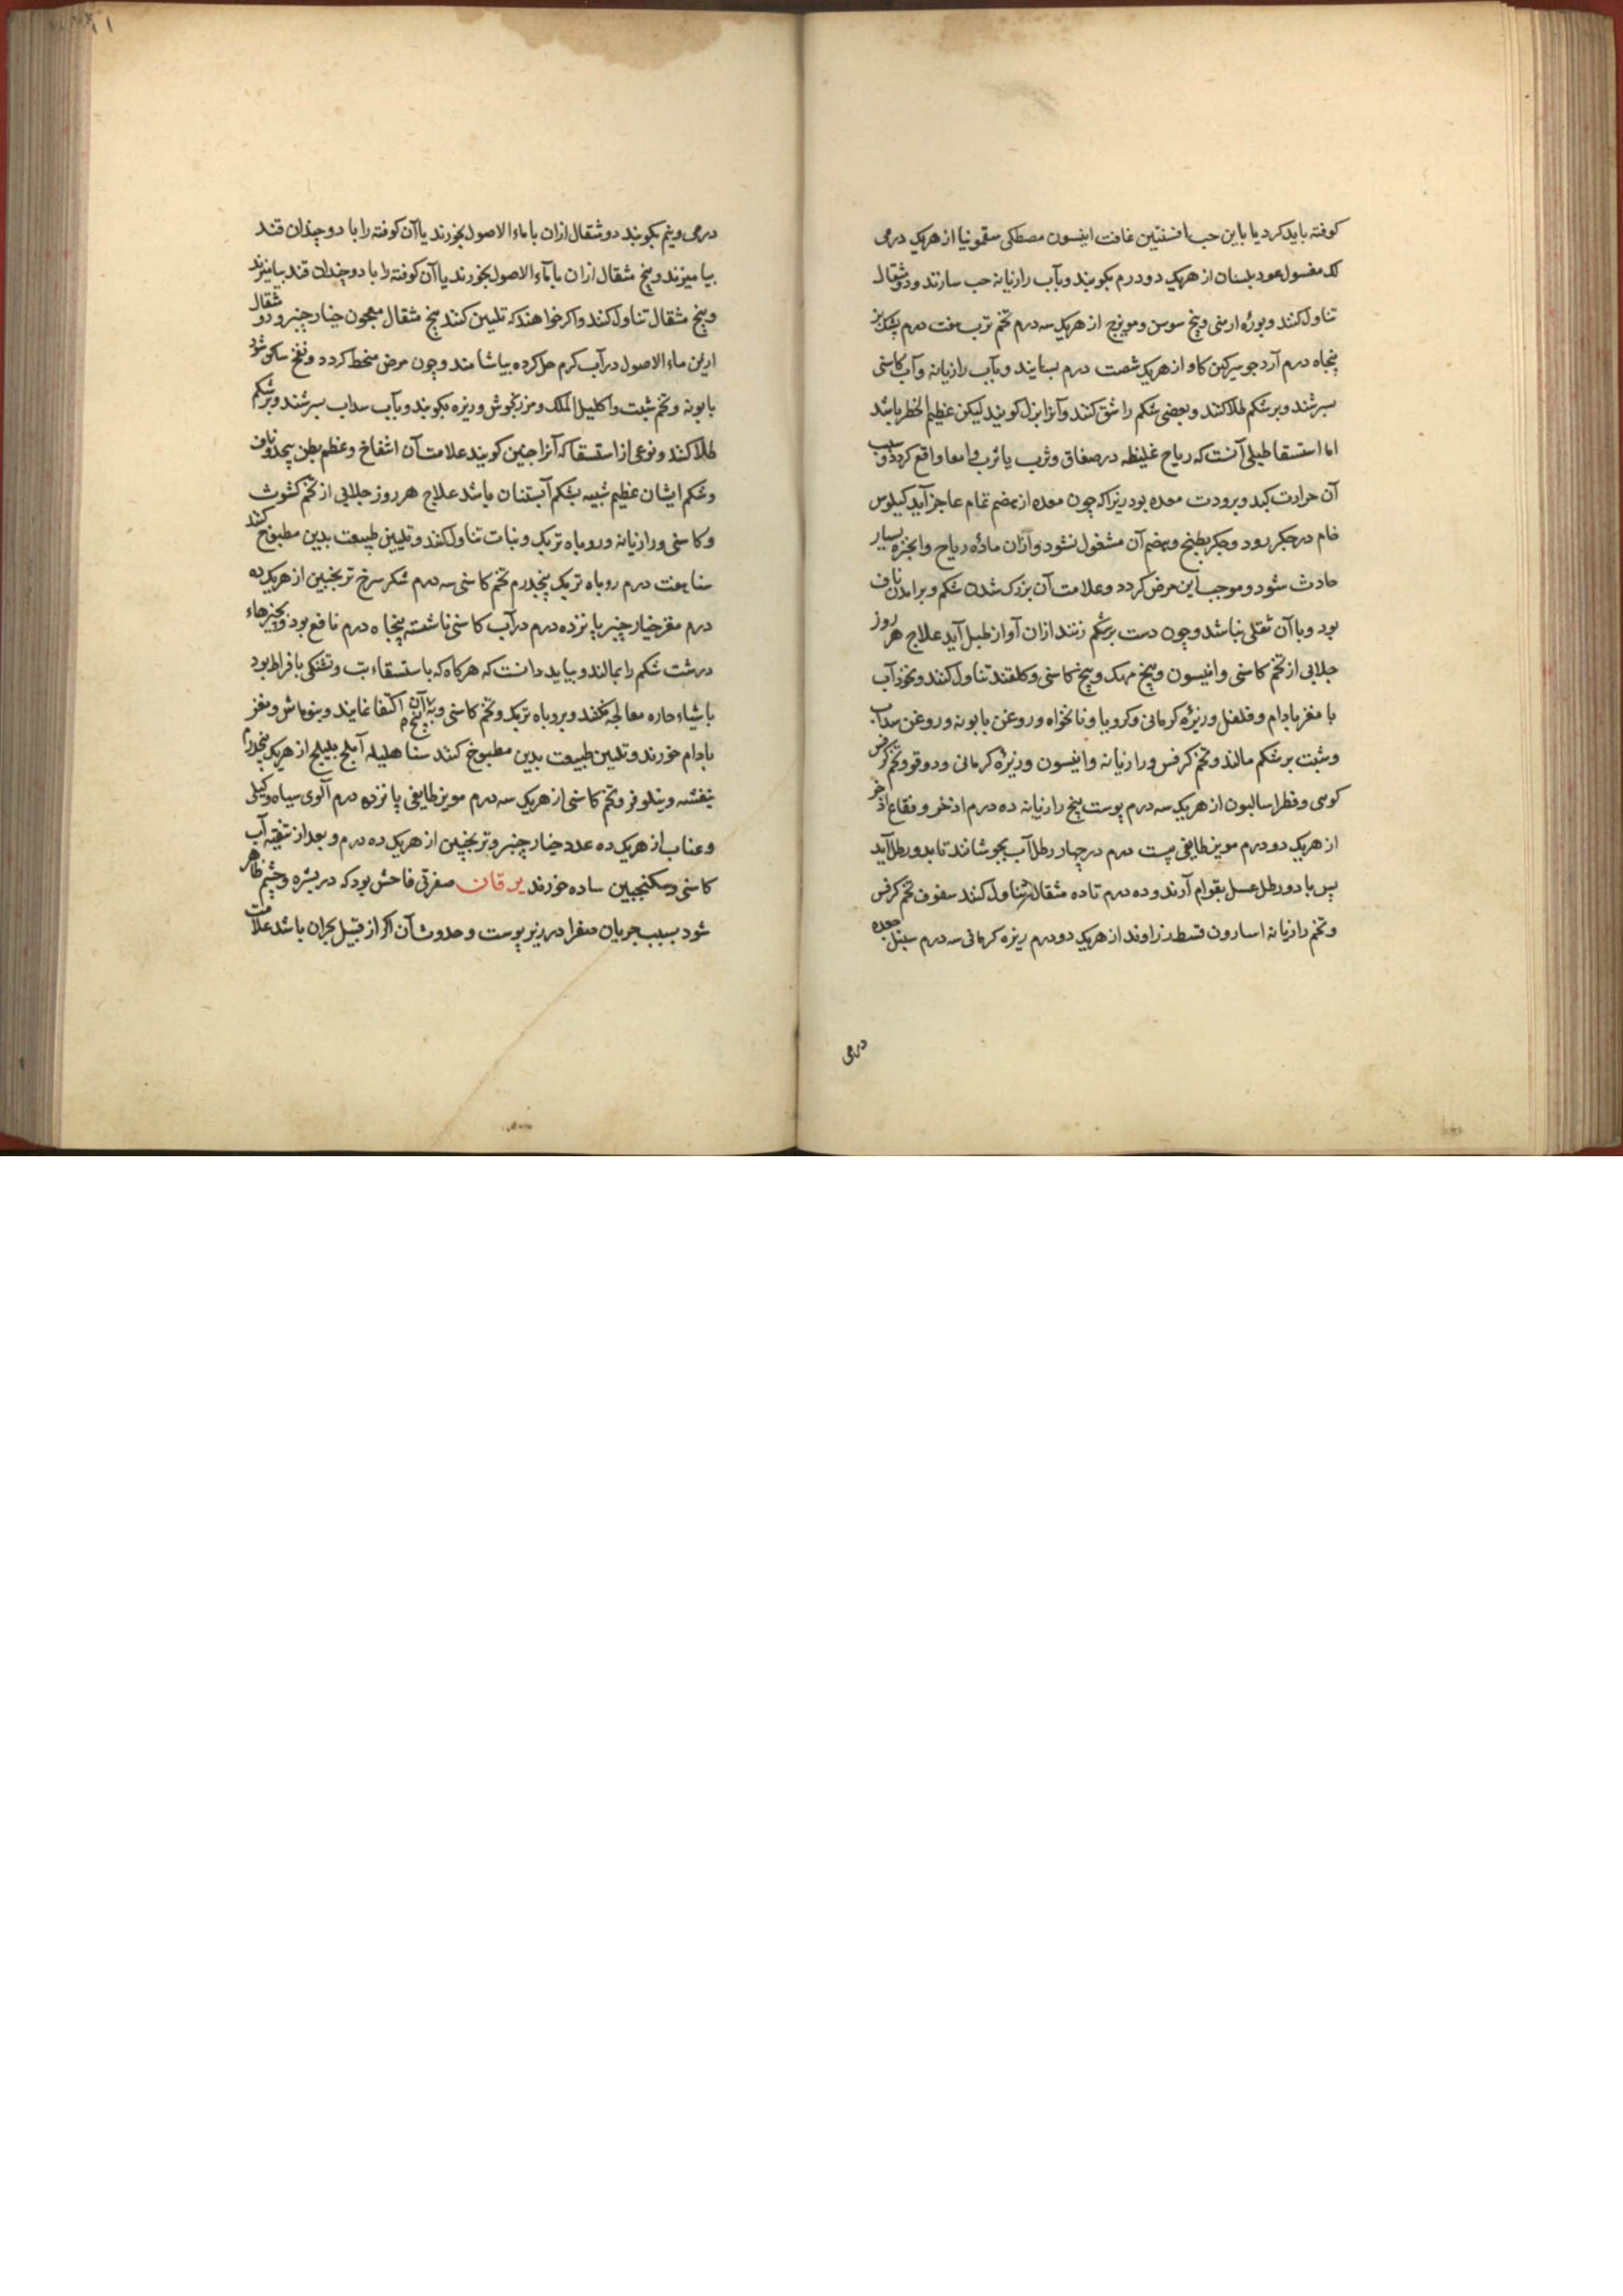 کوفته باید کرد یا باین حب افسنتین غافت انیسون مصطکی سقمونیا از هریک درمی
لک مغسول عود بلسان از هریک دو درم بکوبند و بآب رازیانه حب سازند و دو مثقال
تناول کنند و بوره ارمنی و بیخ سوسن و مویزج از هریک سه درم تخم ترب هفت درم پشک بز
پنجاه درم آرد جو سرکین کاو از هریک شصت درم بسایند و بآب رازیانه و آب کاسنی
بسرشند و بر شکم طلا کنند و بعضی شکم را شق کنند و آنرا بزل کویند لیکن عظیم الخطر باشد
اما استسقا طبلی آنست که ریاح غلیظه در صفاق و ثرب یا ثرب و امعا واقع کردد و سبب
آن حرارت کبد و برودت معده بود زیرا که چون معده از هضم تمام عاجز آید کیلوس
خام در جکر رود و جکر بطبخ و هضم آن مشغول نشود و ازان ماده ریاح و ابخره بسیار
حادث شود و موجب این مرض کردد و علامت آن بزرک شدن شکم و برامدن ناف
بود و با آن ثقلی نباشد و چون دست بر شکم زنند ازان آواز طبل آید علاج هر روز
جلابی از تخم کاسنی و انیسون و بیخ مهک و بیخ کاسنی و کلقند تناول کنند و نخود آب
با مغز بادام و فلفل و زیره کرمانی و کرویا و نانخواه و روغن بابونه و روغن سداب
و شبت بر شکم مالند و تخم کرفس و رازیانه و انیسون و زیره کرمانی و دوقو و تخم کرفس
کوهی و فطراسالیون از هریک سه درم پوست بیخ رازیانه ده درم اذخر و فقاع اذخر
از هریک دو درم مویز طایفی بیست درم در چهار رطل آب بجوشانند تا بدو رطل آید
پس با دو رطل عسل بقوام آرند و ده درم تا ده مثقال تناول کنند سفوف تخم کرفس
و تخم رازیانه اسارون قسط زراوند از هریک دو درم زیره کرمانی سه درم سنبل جعده
درمی
درمی و نیم بکوبند دو مثقال ازان با ماء الاصول بخورند یا آن کوفته را با دو چندان قند
بیامیزند و پنج مثقال ازان با ماء الاصول بخورند یا آن کوفته را با دو چندان قند بیامیزند
و پنج مثقال تناول کنند و اکر خواهند که تلیین کنند پنج مثقال معجون خیار چنبر و دو مثقال
ازین ماء الاصول در آب کرم حل کرده بیاشامند و چون مرض منحط کردد و نفخ ساکن شود
بابونه و تخم شبت و اکلیل الملک و مرزنجوش و زیره بکوبند و بآب سداب بسرشند و بر شکم
طلا کنند و نوعی از استسقا که آنرا جنین کویند علامت آن انتفاخ و عظم بطن بیحد و ناف
و شکم ایشان عظیم شبیه بشکم آبستنان باشد علاج هر روز جلابی از تخم کشوث
و کاسنی و رازیانه و روباه تربک و نبات تناول کنند و تلیین طبیعت بدین مطبوخ کنند
سنا هفت درم روباه تربک پنجدرم تخم کاسنی سه درم شکر سرخ ترنجبین از هریک ده
درم مغز خیار چنبر پانزده درم در آب کاسنی ناشسته پنجاه درم نافع بود و بچیزهاء
درشت شکم را بمالند و بباید دانست که هرکاه که با استسقاء تب و تشنکی بافراط بود
باشیاء حاره معالجه نکنند و بروباه تربک و تخم کاسنی و بیخ آن اکتفا نمایند و بنوماش و مغز
بادام خورند و تلیین طبیعت بدین مطبوخ کنند سنا هلیله آملج بلیلج از هریک پنجدرم
بنفشه و نیلوفر و تخم کاسنی از هریک سه درم مویز طایفی پانزده درم آلوی سیاه و کیلی
و عناب از هریک ده عدد خیار چنبر و ترنجبین از هریک ده درم و بعد از تنقیه آب
کاسنی و سکنجبین ساده خورند یرقان صفرتی فاحش بود که در بشره و چشم ظاهر
شود بسبب جریان صفرا در زیر پوست و حدوث آن اکر از قبیل بحران باشد علامت